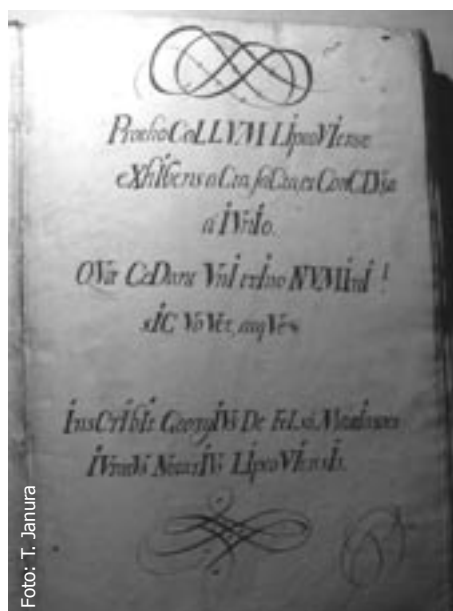 ProthoCoLLVM LIptoVIense
eXhIbens aCta faCta, et ConCLVsa
a IVnIo.
QVæ CeDant VnI et trIno NVMInI!
sIC VoVet, atqVe
InsCrIbIt GeorgIVs De FeLsö
IVratVs NotarIVs LIptoVIensIs.
Foto: T. Janura